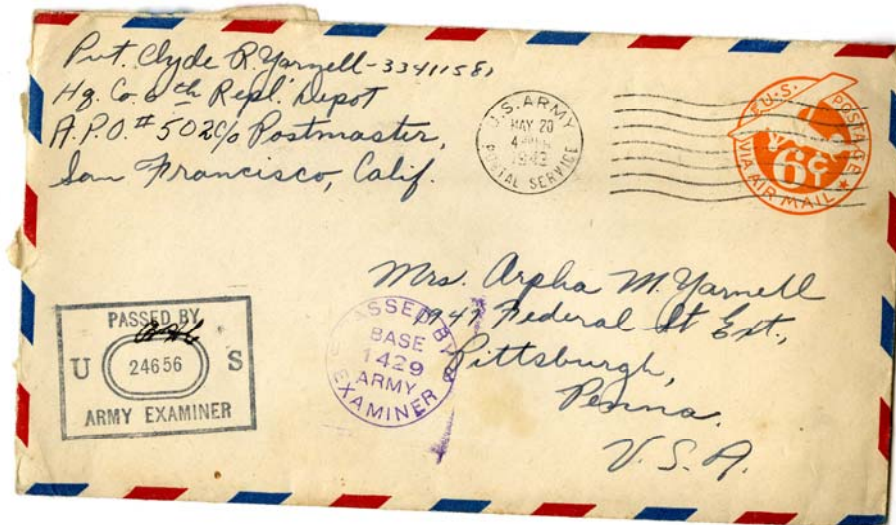 Pvt. Clyde R. Yarnell-33411581
Hq. Co. 6th Repl. Depot
A.P.O. # 502 c/o Postmaster,
San Francisco, Calif.
U.S. ARMY
MAY 20
1943
POSTAL SERVICE
U.S. POSTAGE
6¢
VIA AIR MAIL
Mrs. Arpha M. Yarnell
1947 Federal St Ext.,
Pittsburgh,
Penna.
U.S.A.
PASSED BY
U 24656 S
ARMY EXAMINER
PASSED BY
BASE
1429
ARMY
EXAMINER